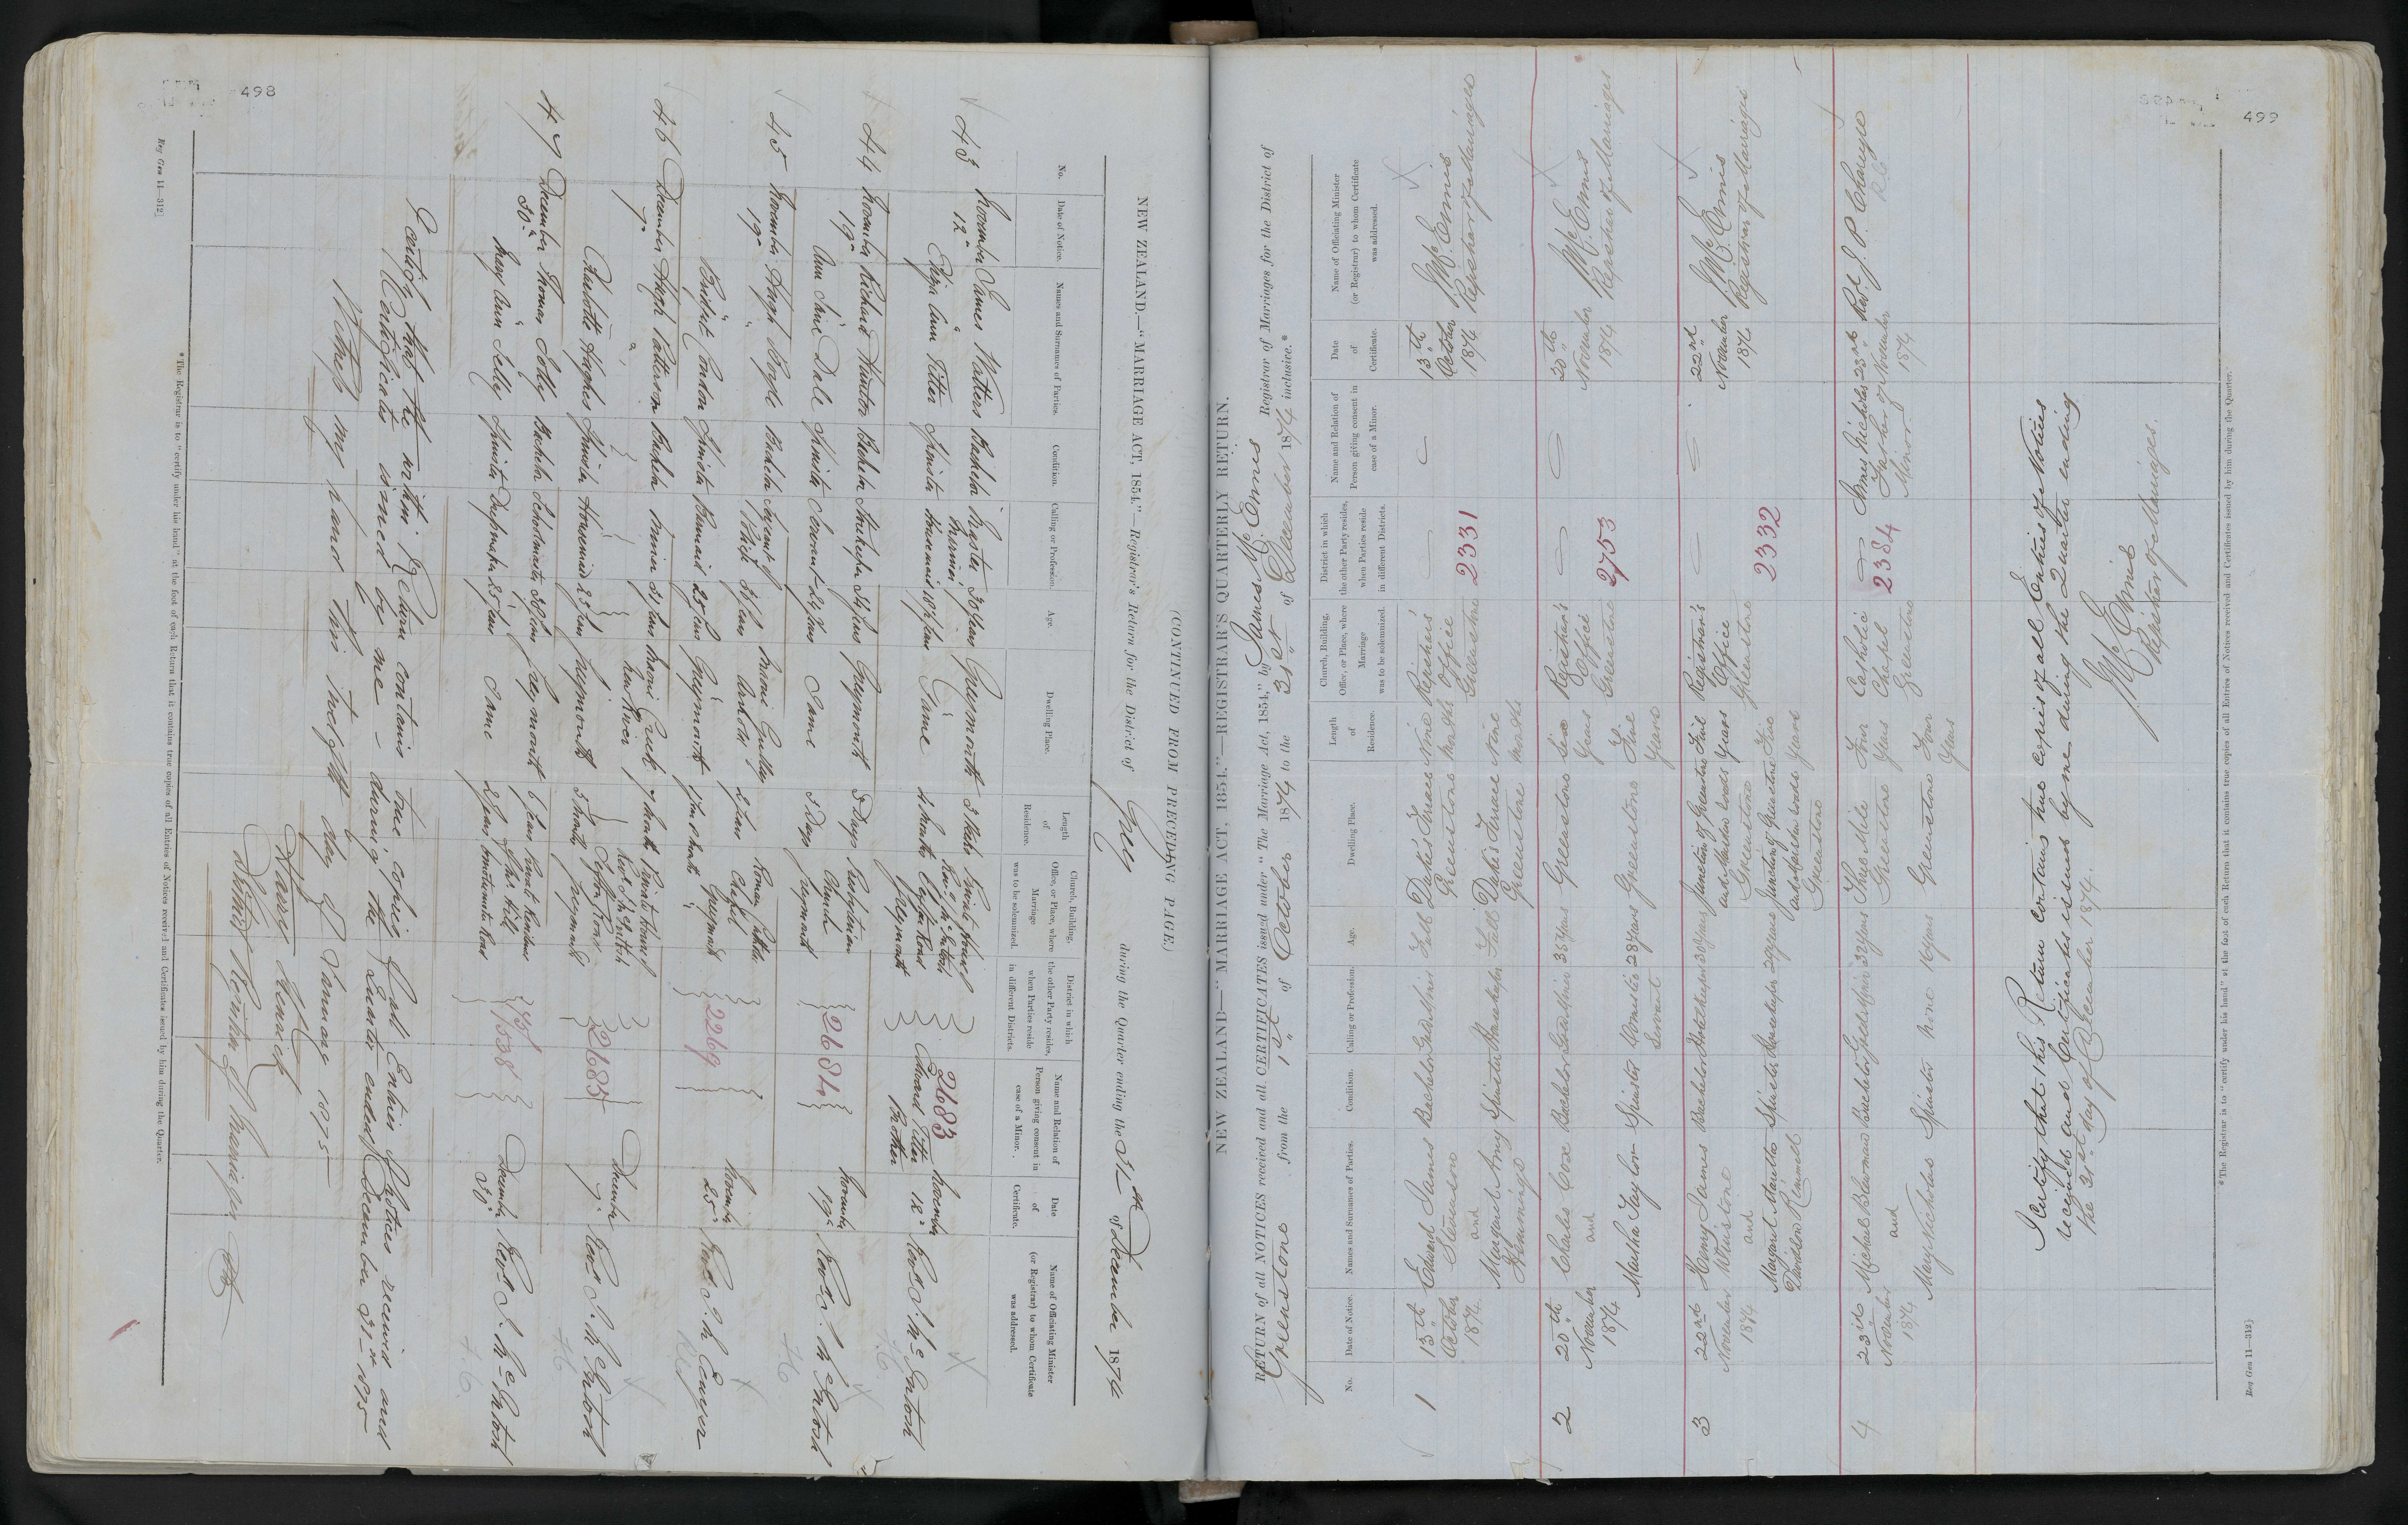 498
(CONTINUED FROM PRECEDING PAGE.)
NEW ZEALAND.—"MARRIAGE ACT, 1854."—Registrar's Return for the District of Grey during the Quarter ending the 31st of December 1874
No.
Date of Notice.
Names and Surnames of Parties.
Condition.
Calling or Profession.
Age.
Dwelling Place.
Length of Residence.
Church, Building, Office, or Place, where Marriage was to be solemnized.
District in which the other Party resides, when Parties reside in different Districts.
Name and Relation of Person giving consent in case of a Minor.
Date of Certificate.
Name of Officiating Minister (or Registrar) to whom Certificate was addressed.
43 November 12 James Watters Bachelor Master Mariner 30 years Greymouth 3 Weeks
Eliza Ann Titter Spinster 18 years Same 4 Months
Greymouth
2683
Edward Titter Brother
November 12
44 November 19 Richard Bachelor Greymouth 3 Days Presbyterian Church Greymouth
Ann Dale Spinster Servant 24 years Same 3 Days
2684
November 19
45 November 19 Hugh Boyle Bachelor Sergeant of Police 2 years Roman Catholic Chapel Greymouth
Bridget Condon Spinster Barmaid 25 years Greymouth
2269
November 25
46 December 7 Hugh Patterson Bachelor Miner 7 Months
Charlotte Hughes Spinster Housemaid 25 years Greymouth 3 Months
2685
December 7
47 December 30 Thomas Bachelor Schoolmaster Greymouth 6 years
Mary Ann Spinster Dressmaker 25 years Same
December 30
I certify that the within Return contains true copies of all Entries of Notices received and
Certificates issued by me during the Quarter ending December 31st 1875
Witness my hand this twelfth day of January 1875
Harry Kenrick
Registrar of Marriages
*The Registrar is to "certify under his hand" at the foot of each Return that it contains true copies of all Entries of Notices received and Certificates issued by him during the Quarter.
Reg Gen 11—312]
499
NEW ZEALAND—"MARRIAGE ACT, 1854."—REGISTRAR'S QUARTERLY RETURN.
RETURN of all NOTICES received and all CERTIFICATES issued under "The Marriage Act, 1854," by James McEnnis Registrar of Marriages for the District of
Greenstone from the 1st of October 1874 to the 31st of December 1874 inclusive.*
No.
Date of Notice.
Names and Surnames of Parties.
Condition.
Calling or Profession.
Age.
Dwelling Place.
Length of Residence.
Church, Building, Office, or Place, where Marriage was to be solemnized.
District in which the other Party resides, when Parties reside in different Districts.
Name and Relation of Person giving consent in case of a Minor.
Date of Certificate.
Name of Officiating Minister (or Registrar) to whom Certificate was addressed.
1 13th October 1874 Edward James Stevenson Bachelor Gold Miner Full Duke's Terrace Greenstone Nine Months Registrar's Office Greenstone 13th October 1874 J McEnnis Registrar of Marriages
and
Margaret Amy Hemmings Spinster Housekeeper Full Duke's Terrace Greenstone Nine Months
2331
2 20th November 1874 Charles Coxe Bachelor Gold Miner 35 years Greenstone Six Years Registrar's Office Greenstone 20th November 1874 J McEnnis Registrar of Marriages
and
Martha Taylor Spinster Domestic Servant 28 years Greenstone Five Years
2753
3 22nd November 1874 Henry James Winstone Bachelor Hotelkeeper 30 years Junction of Greenstone and Marsden Roads Greenstone Five Years Registrar's Office Greenstone 22nd November 1874 J McEnnis Registrar of Marriages
and
Margaret Davidson Spinster Housekeeper 29 years Junction of Greenstone and Marsden Roads Greenstone Five Years
2332
4 23rd November 1874 Michael Bachelor Gold Miner 32 years Three Mile Greenstone Four Years Catholic Chapel Greenstone James Nicholas Father of Minor 23rd November 1874 Revd J. P. Chareyre
R C
and
Mary Nicholas Spinster None 16 years Greenstone Four Years
2384
I certify that this Return contains true copies of all Entries of Notices
received and Certificates issued by me during the Quarter ending
the 31st day of December 1874.
J McEnnis
Registrar of Marriages.
*The Registrar is to "certify under his hand" at the foot of each Return that it contains true copies of all Entries of Notices received and Certificates issued by him during the Quarter.
Reg Gen 11—312]